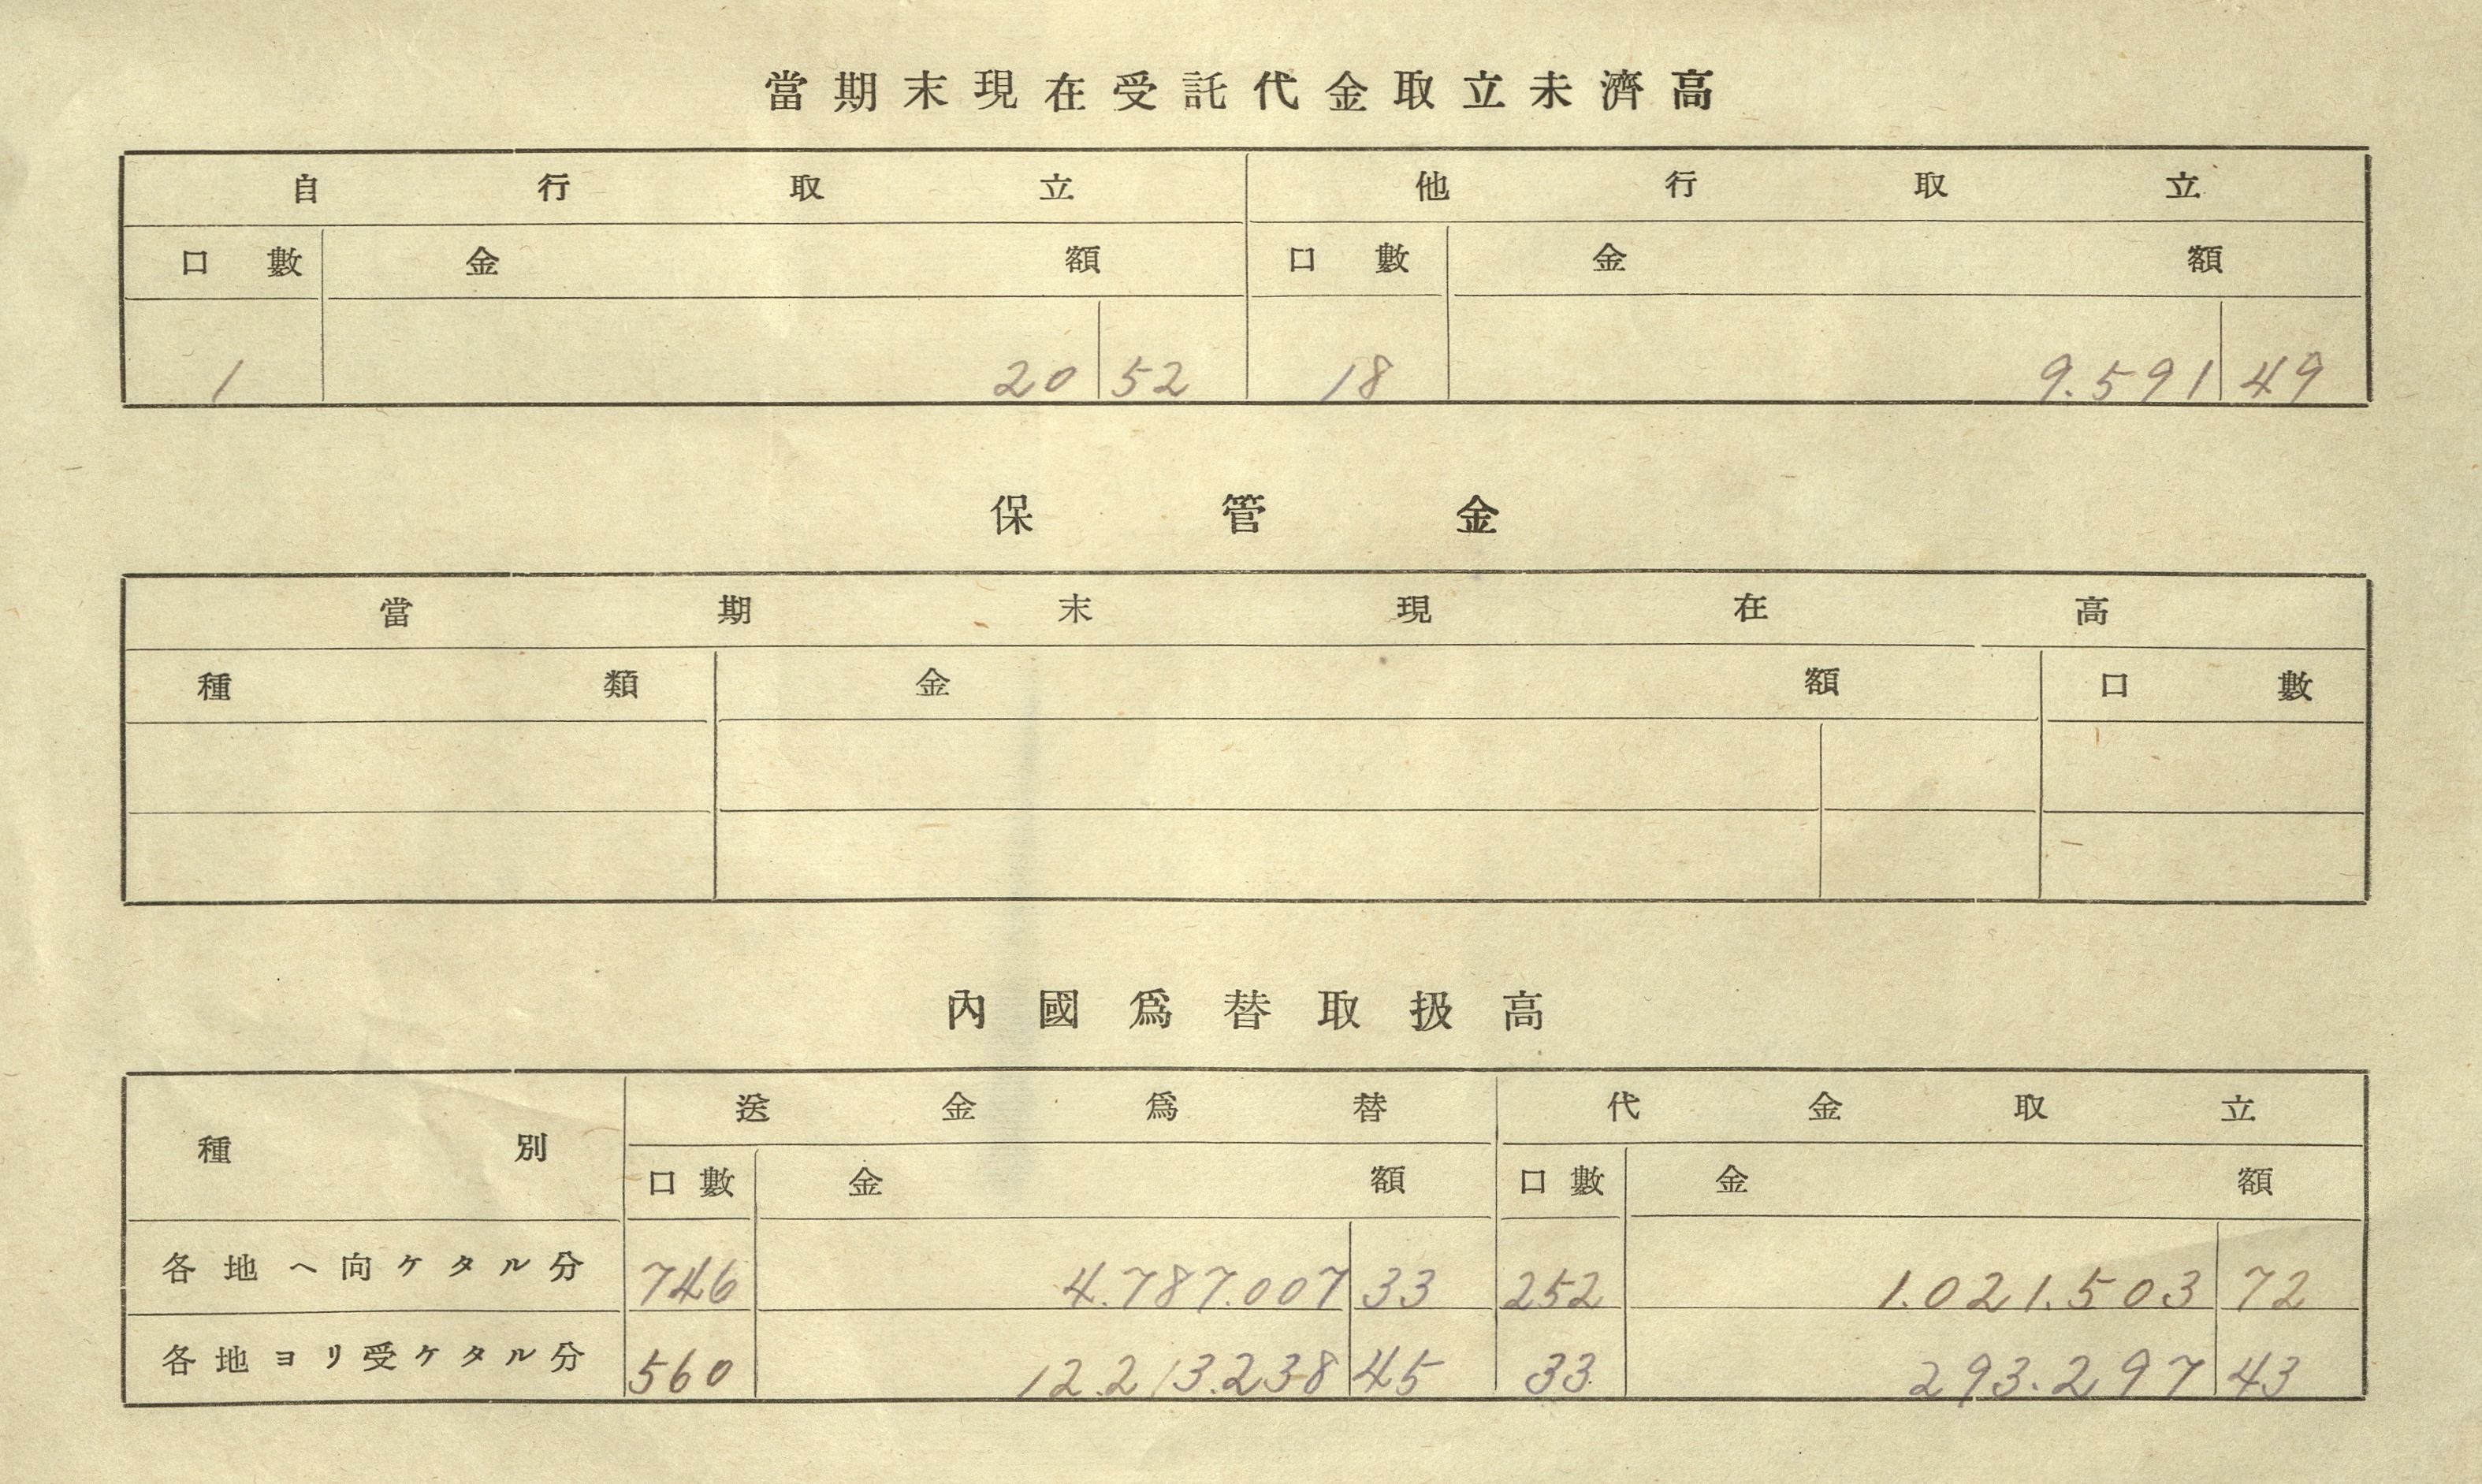 當期末現在受託代金取立未濟高
自行取立 他行取立
口數 金額 口數 金額
1 20 52 18 9.591 49
保管金
當期末現在高
種類 金額 口數
內國爲替取扱高
種別 送金爲替 代金取立
口數 金額 口數 金額
各地ヘ向ケタル分 746 4.787.007 33 252 1.021.503 72
各地ヨリ受ケタル分 560 12.213.238 45 33 293.297 43